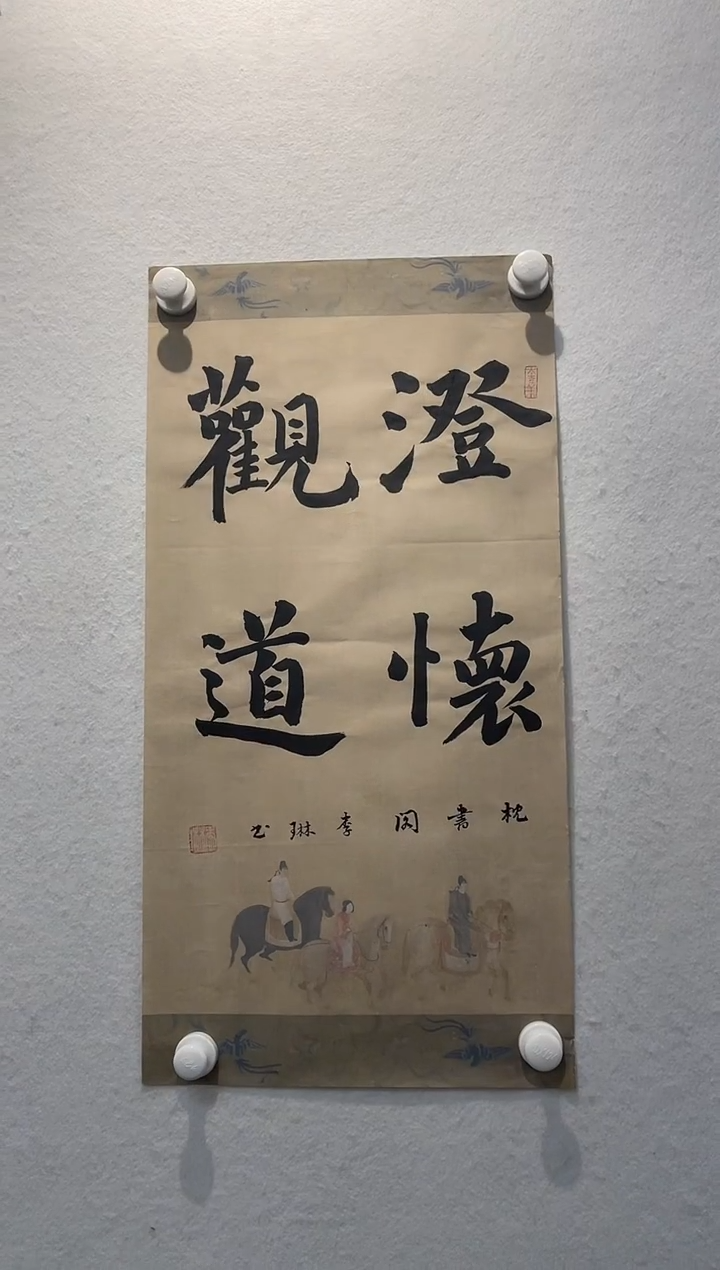 澄懷
觀道
枕書閣李琳书